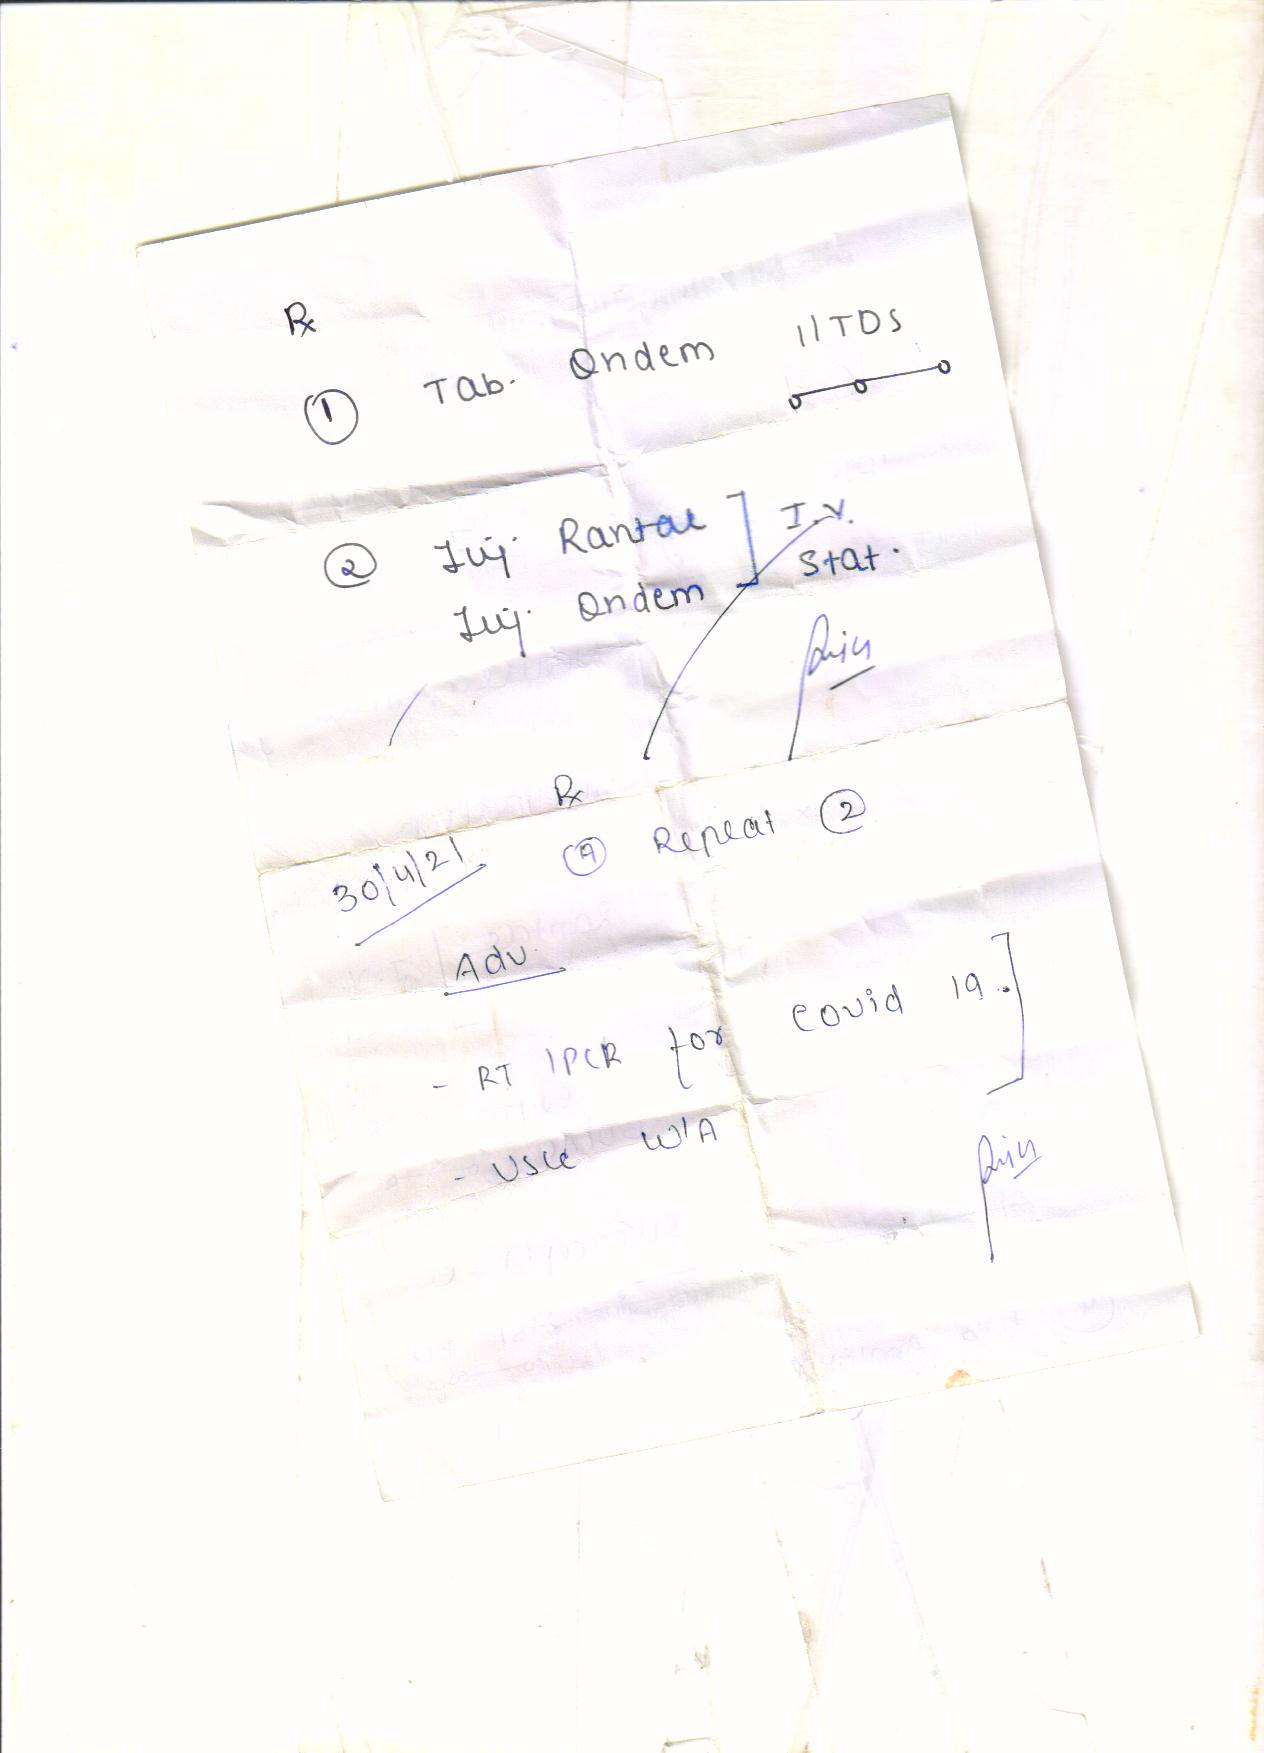 Rx
① Tab. Ondem 1/TDS
② Inj. Rantac ] I.V.
Inj. Ondem ] Stat.
Rx
30/4/21 Repeat ②
Adv.
- RT PCR for Covid 19.
- W/A